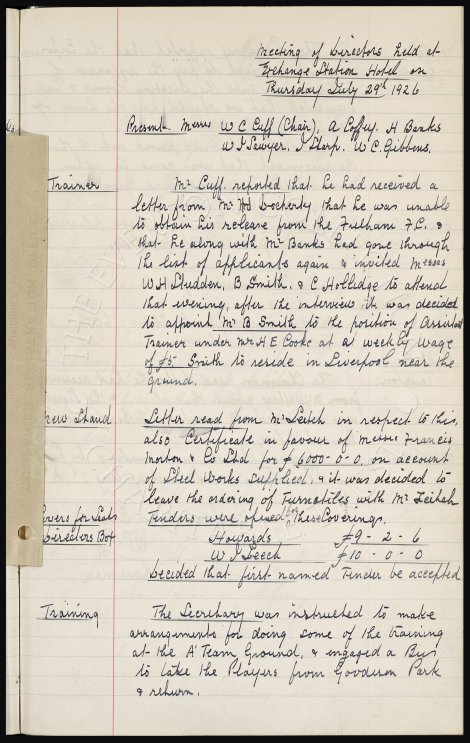 Meeting of Directors held at
Exchange Station Hotel on
Thursday July 29th 1926
Present. Messrs W C Cuff (Chair), A Coffey. H Banks
W J Sawyer. J Sharp. W. C. Gibbins.
Trainer
Mr Cuff. reported that he had received a
letter from Mr Docherty that he was unable
to obtain his release from the Fulham F.C. &
that he along with Mr Banks had gone through
the list of applicants again & invited Messrs
W H Studden, B Smith. & C Hollidge to attend
that evening, after the interview it was decided
to appoint Mr B Smith to the position of Assistant
Trainer under Mr H E Cooke at a weekly wage
of £5. Smith to reside in Liverpool near the
ground.
New Stand
Letter read from Mr Leitch in respect to this,
also Certificate in favour of Messrs Francis
Morton & Co Ltd for £6000-0-0 on account
of Steel Works supplied, & it was decided to
leave the ordering of Turnstiles with Mr Leitch
Covers for Seats
Directors Box
Tenders were opened for these Coverings.
Howards £9-2-6
W J Leech £10-0-0
Decided that first named Tender be accepted
Training
The Secretary was instructed to make
arrangements for doing some of the training
at the A' Team Ground, & engaged a Bus
to take the Players from Goodison Park
& return.